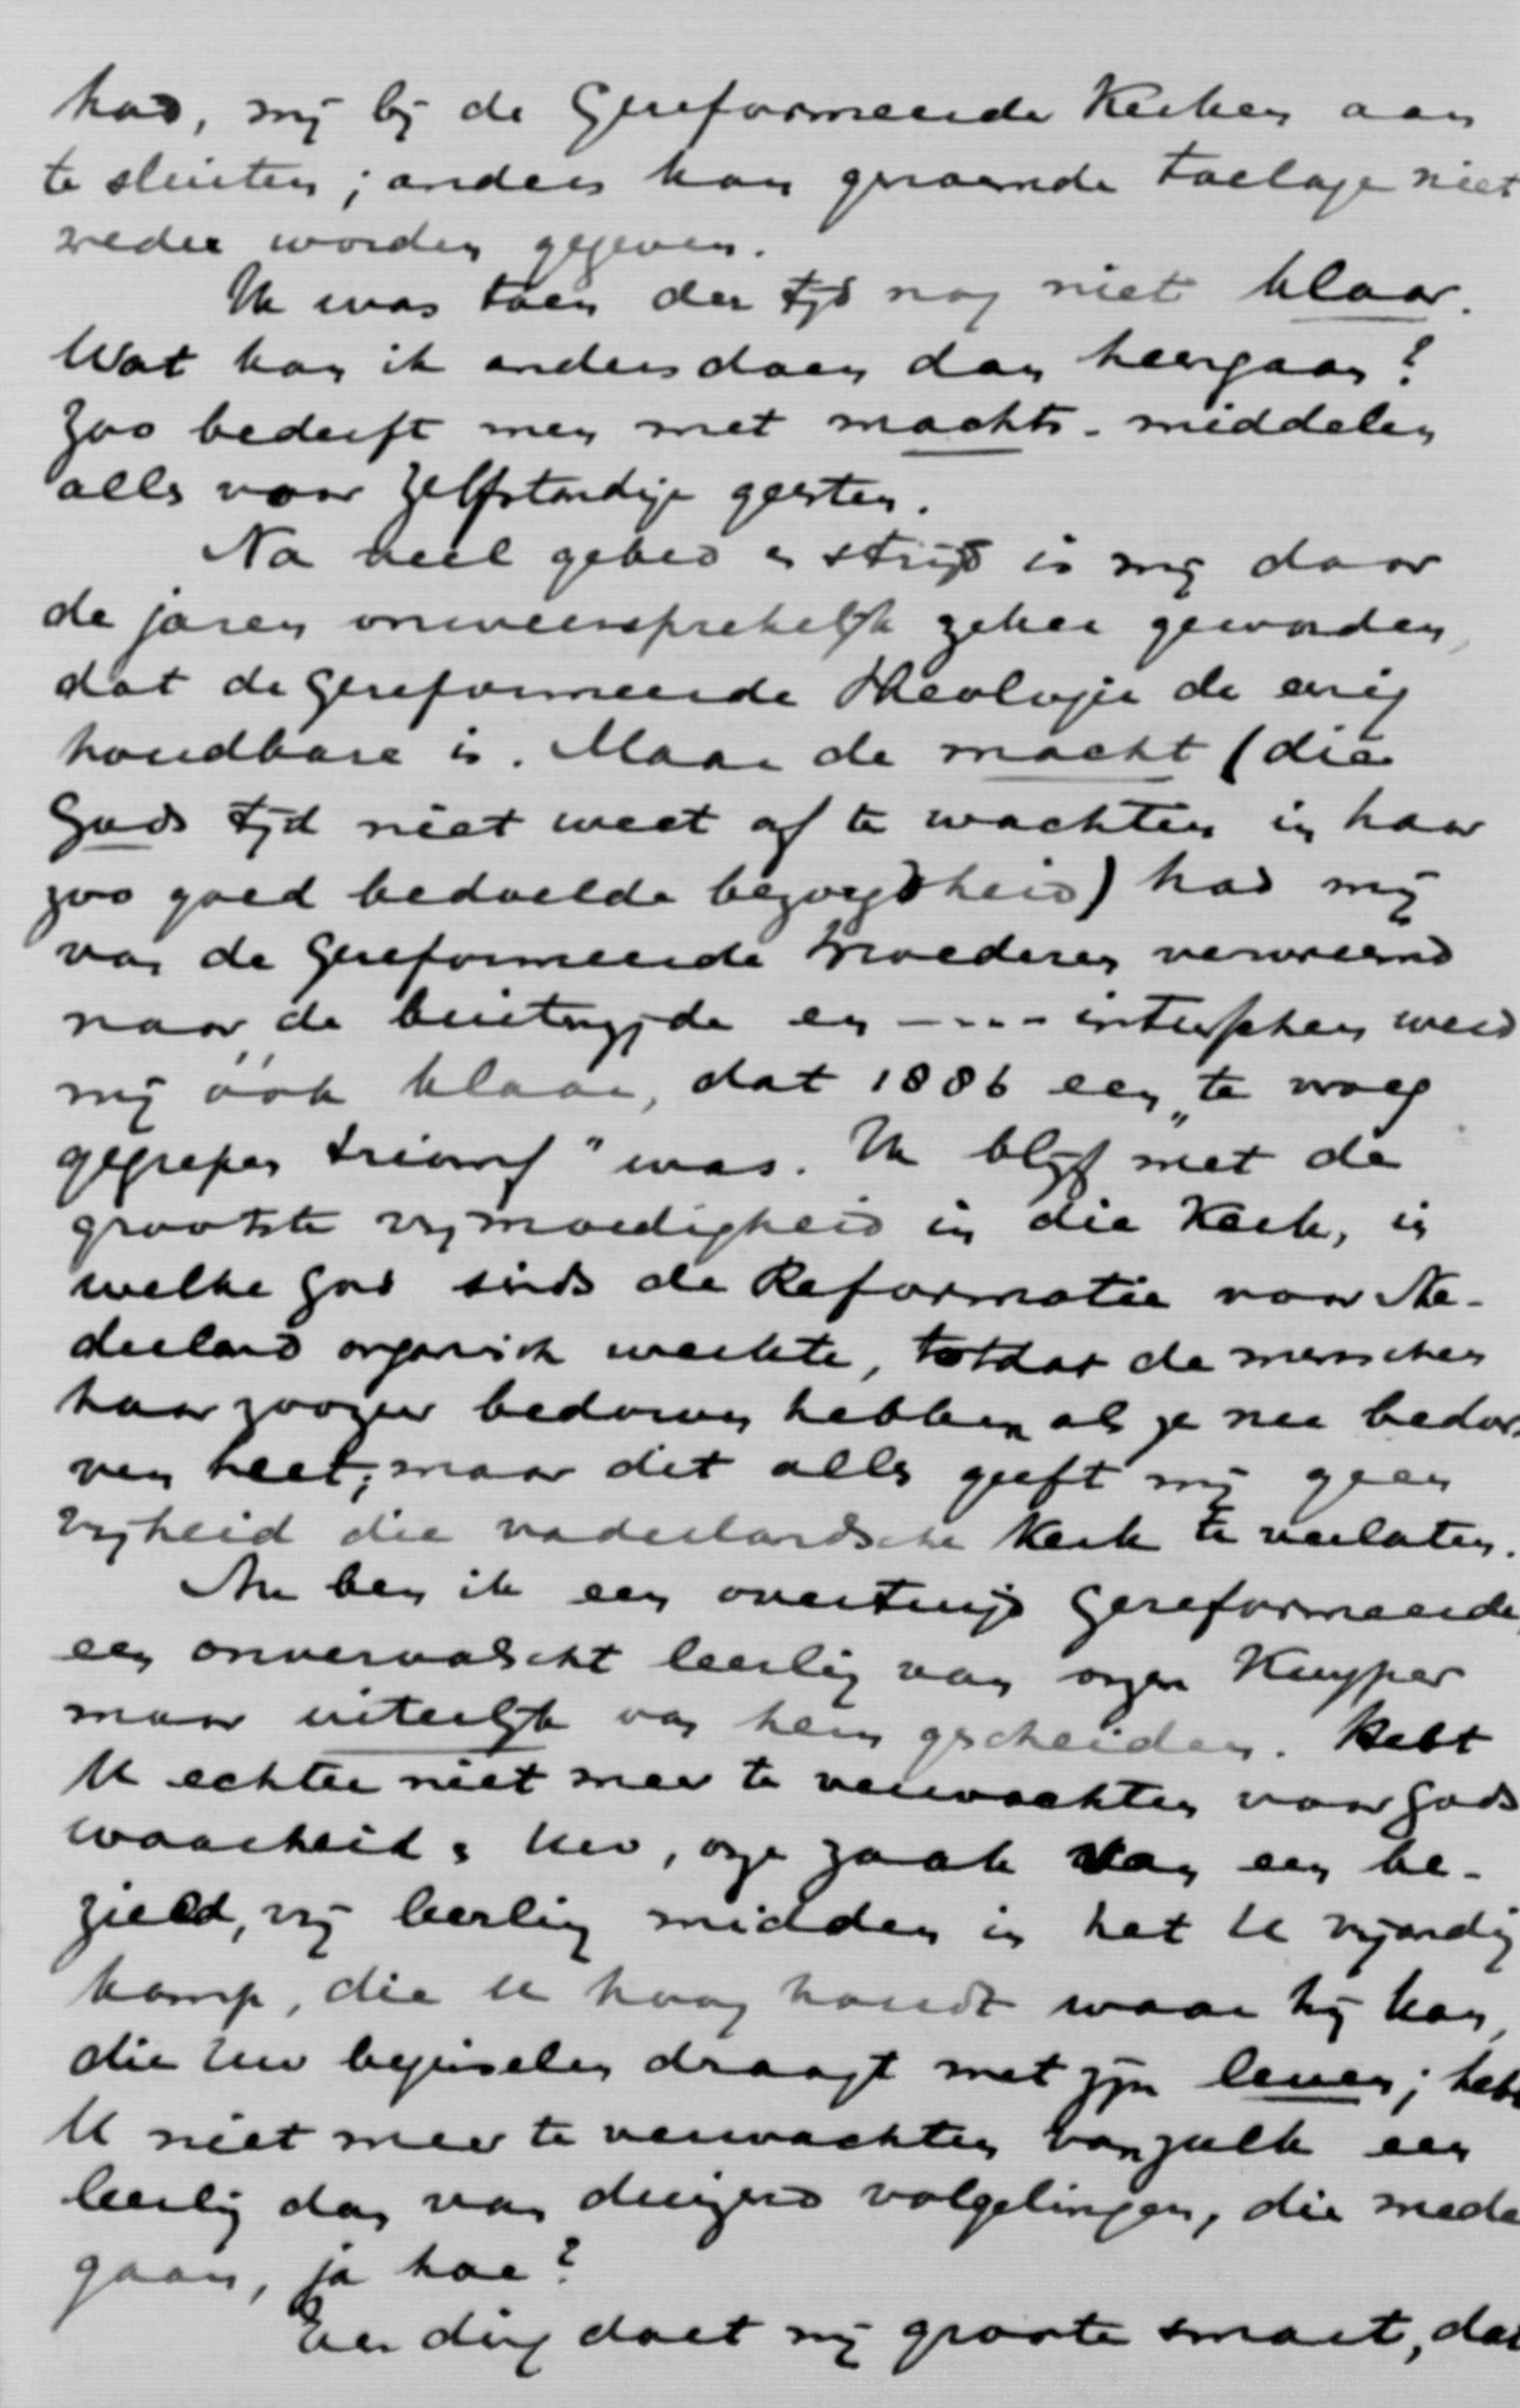 had, mij bij de Gereformeerde Kerken aan
te sluiten; anders kon genoemde toelage niet
weder worden gegeven.
Ik was toen der tijd nog niet klaar.
Wat kon ik anders doen dan heengaan?
Zoo bederft men met machts-middelen
alles voor zelfstandige geesten.
Na veel gebed en strijd is mij door
de jaren onweersprekelijk zeker geworden,
dat de gereformeerde Theologie de eenig
houdbare is. Maar de macht (die
Gods tijd niet weet af te wachten in haar
zoo goed bedoelde bezorgdheid) had mij
van de Gereformeerde broederen vervreemd
naar de buitenzijde en ---- intusschen werd
mij óók klaar, dat 1886 een „te vroeg
gegrepen triomf" was. Ik blijf met de
grootste vrijmoedigheid in die Kerk, in
welke God sinds de Reformatie voor Ne-
derland organisch werkte, totdat de menschen
haar zoozeer bedorven hebben als ze nu bedor-
ven heet; maar dit alles geeft mij geen
vrijheid die vaderlandsche Kerk te verlaten.
Nu ben ik een overtuigd Gereformeerde,
een onvervalscht leerling van onzen Kuyper
maar uiterlijk van hem gescheiden. Hebt
U echter niet meer te verwachten voor Gods
waarheid, Uw, onze zaak van een be-
zield, vrij leerling midden in het U vijandig
kamp, die U hoog houdt waar hij kan,
die Uw beginselen draagt met zijn leven; hebt
U niet meer te verwachten van zulk een
leerling dan van duizend volgelingen, die mede
gaan, ja hoe?
Een ding doet mij groote smart, dat